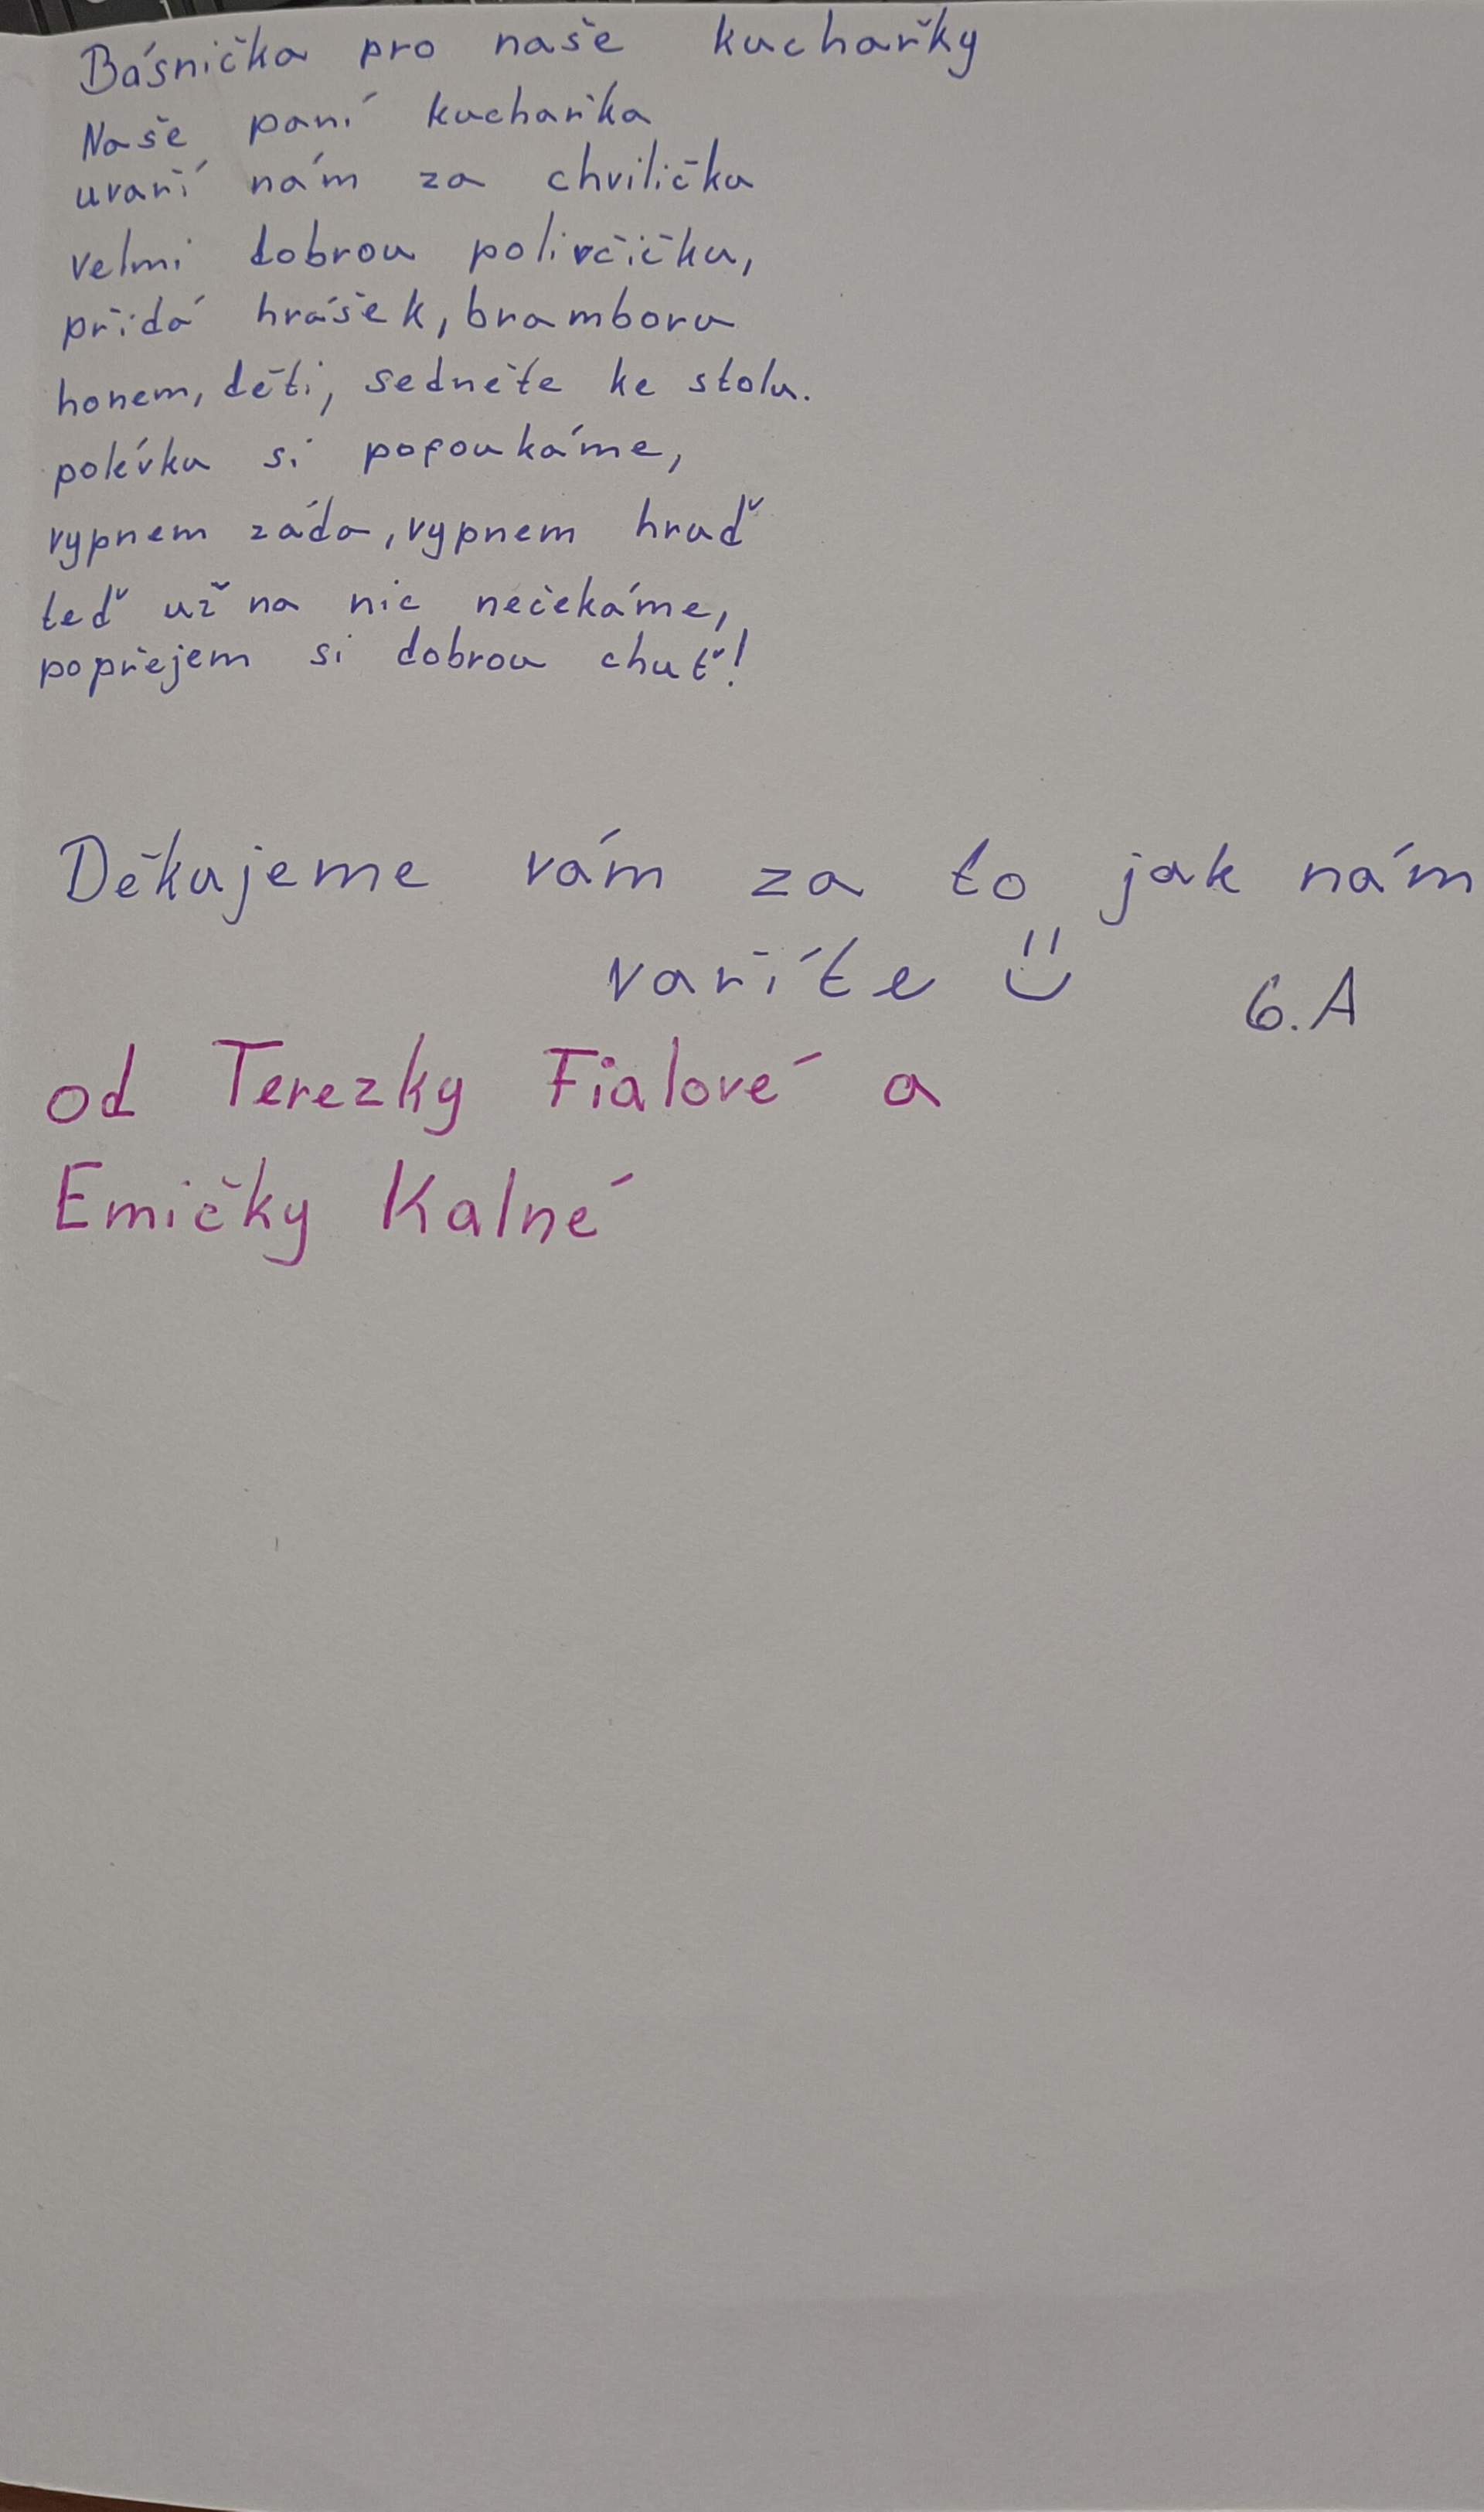 Básnička pro naše kuchařky
Naše paní kuchařka
uvaří nám za chviličku
velmi dobrou polivčičku,
přidá hrášek, bramboru
honem, děti, sedněte ke stolu.
polévku si pofoukáme,
vypnem záda, vypnem hruď
teď už na nic nečekáme,
popřejem si dobrou chuť!
Děkujeme vám za to jak nám
vaříte
6.A
od Terezky Fialové a
Emičky Kalné